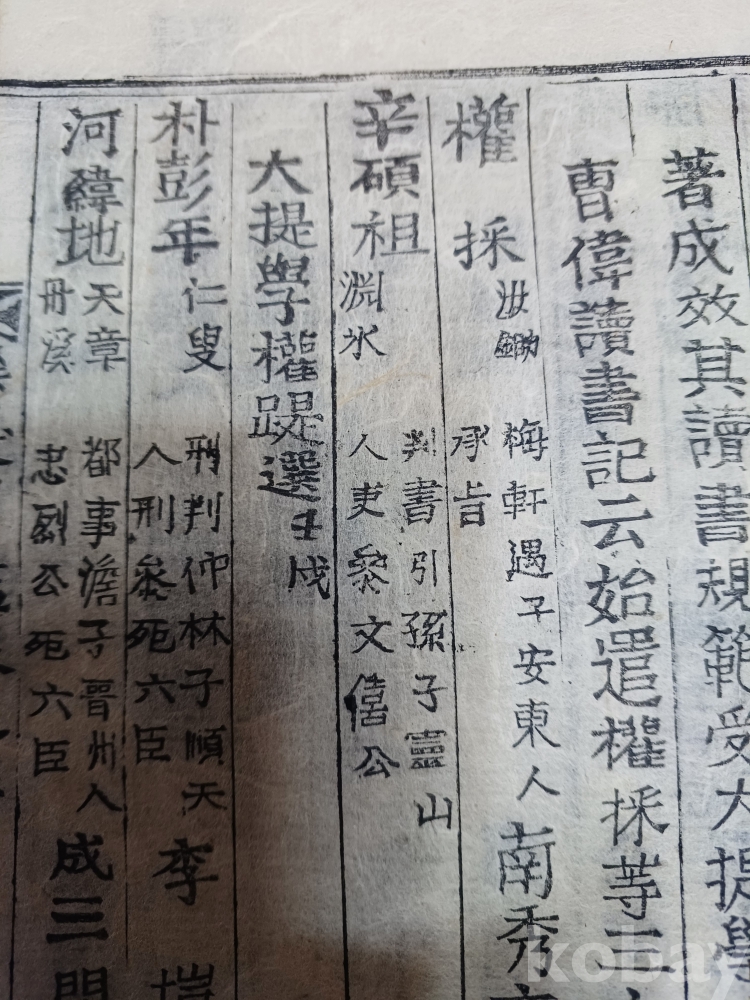 著成效其讀書規範受大提學
曺偉讀書記云始遣權採等三
權採 汝鋤 梅軒遇子安東人 承旨 南秀
辛碩祖 淵氷 判書引孫子靈山 人吏叅文僖公
大提學權踶選 壬戌
朴彭年 仁叟 刑判仲林子順天 人刑叅死六臣 李塏
河緯地 天章 丹溪 都事澹子晉州人 忠烈公死六臣 成三問
kobay